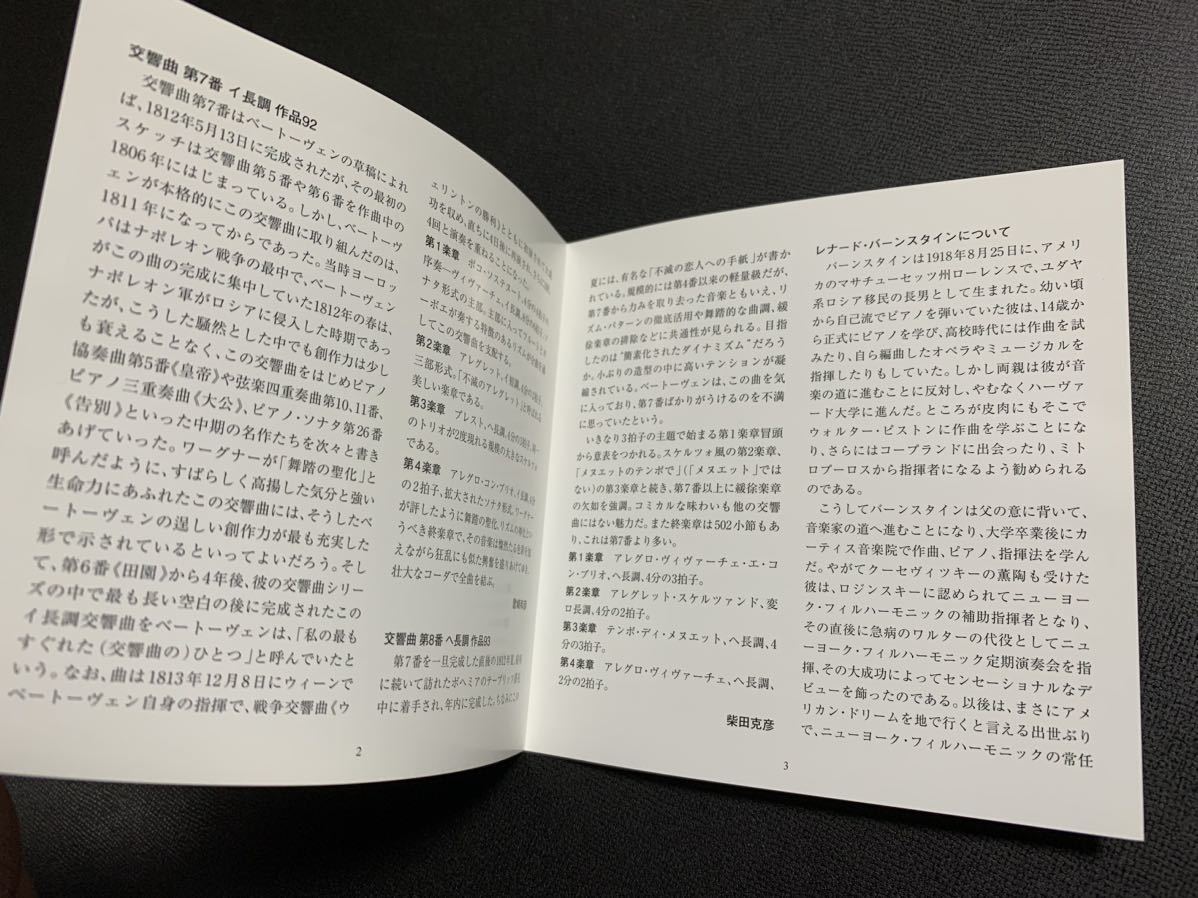 交響曲 第7番 イ長調 作品92
交響曲第7番はベートーヴェンの草稿によれ
ば、1812年5月13日に完成されたが、その最初の
スケッチは交響曲第5番や第6番を作曲中の
1806年にはじまっている。しかし、ベートーヴ
ェンが本格的にこの交響曲に取り組んだのは、
1811年になってからであった。当時ヨーロッ
パはナポレオン戦争の最中で、ベートーヴェン
がこの曲の完成に集中していた1812年の春は、
ナポレオン軍がロシアに侵入した時期であっ
たが、こうした騒然とした中でも創作力は少し
も衰えることなく、この交響曲をはじめピアノ
協奏曲第5番《皇帝》や弦楽四重奏曲第10、11番、
ピアノ三重奏曲《大公》、ピアノ・ソナタ第26番
《告別》といった中期の名作たちを次々と書き
あげていった。ワーグナーが「舞踏の聖化」と
呼んだように、すばらしく高揚した気分と強い
生命力にあふれたこの交響曲には、そうしたベ
ートーヴェンの逞しい創作力が最も充実した
形で示されているといってよいだろう。そし
て、第6番《田園》から4年後、彼の交響曲シリー
ズの中で最も長い空白の後に完成されたこの
イ長調交響曲をベートーヴェンは、「私の最も
すぐれた(交響曲の)ひとつ」と呼んでいたと
いう。なお、曲は1813年12月8日にウィーンで
ベートーヴェン自身の指揮で、戦争交響曲《ウ
ェリントンの勝利》とともに初演
功を収め、直ちに4日後に再演され、さらに
4回と演奏を重ねることになった。
第1楽章 ポコ・ソステヌート、
序奏―ヴィヴァーチェ、イ長調、
ナタ形式の主部。主部に入ってフルートと
ーボエが奏する特徴のあるリズムが
してこの交響曲を支配する。
第2楽章 アレグレット、イ短調、4分の2拍子、
三部形式。「不滅のアレグレット」と呼ばれる
美しい楽章である。
第3楽章 プレスト、ヘ長調、4分の3拍子、
のトリオが2度現れる規模の大きなスケルツォ
である。
第4楽章 アレグロ・コン・ブリオ、イ長調、4分
の2拍子、拡大されたソナタ形式。ワーグナー
が評したように舞踏の聖化、リズムの
うべき終楽章で、その音楽は
えながら狂乱にも似た興奮を盛りあげてゆき、
壮大なコーダで全曲を結ぶ。
交響曲 第8番 ヘ長調 作品93
第7番を一旦完成した直後の1812年夏、
に続いて訪れたボヘミアのテープリッツ
中に着手され、年内に完成した。ちなみにこの
2
夏には、有名な「不滅の恋人への手紙」が書か
れている。規模的には第4番以来の軽量級だが、
第7番から力みを取り去った音楽ともいえ、リ
ズム・パターンの徹底活用や舞踏的な曲調、緩
徐楽章の排除などに共通性が見られる。目指
したのは“簡素化されたダイナミズム”だろう
か、小ぶりの造型の中に高いテンションが凝
縮されている。ベートーヴェンは、この曲を気
に入っており、第7番ばかりがうけるのを不満
に思っていたという。
いきなり3拍子の主題で始まる第1楽章冒頭
から意表をつかれる。スケルツォ風の第2楽章、
「メヌエットのテンポで」(「メヌエット」では
ない)の第3楽章と続き、第7番以上に緩徐楽章
の欠如を強調。コミカルな味わいも他の交響
曲にはない魅力だ。また終楽章は502小節もあ
り、これは第7番より多い。
第1楽章 アレグロ・ヴィヴァーチェ・エ・コ
ン・ブリオ、ヘ長調、4分の3拍子。
第2楽章 アレグレット・スケルツァンド、変
ロ長調、4分の2拍子。
第3楽章 テンポ・ディ・メヌエット、ヘ長調、4
分の3拍子。
第4楽章 アレグロ・ヴィヴァーチェ、ヘ長調、
2分の2拍子。
柴田克彦
レナード・バーンスタインについて
バーンスタインは1918年8月25日に、アメリ
カのマサチューセッツ州ローレンスで、ユダヤ
系ロシア移民の長男として生まれた。幼い頃
から自己流でピアノを弾いていた彼は、14歳か
ら正式にピアノを学び、高校時代には作曲を試
みたり、自ら編曲したオペラやミュージカルを
指揮したりもしていた。しかし両親は彼が音
楽の道に進むことに反対し、やむなくハーヴァ
ード大学に進んだ。ところが皮肉にもそこで
ウォルター・ピストンに作曲を学ぶことにな
り、さらにはコープランドに出会ったり、ミト
ロプーロスから指揮者になるよう勧められる
のである。
こうしてバーンスタインは父の意に背いて、
音楽家の道へ進むことになり、大学卒業後にカ
ーティス音楽院で作曲、ピアノ、指揮法を学ん
だ。やがてクーセヴィツキーの薫陶も受けた
彼は、ロジンスキーに認められてニューヨー
ク・フィルハーモニックの補助指揮者となり、
その直後に急病のワルターの代役としてニュ
ーヨーク・フィルハーモニック定期演奏会を指
揮、その大成功によってセンセーショナルなデ
ビューを飾ったのである。以後は、まさにアメ
リカン・ドリームを地で行くと言える出世ぶり
で、ニューヨーク・フィルハーモニックの常任
3